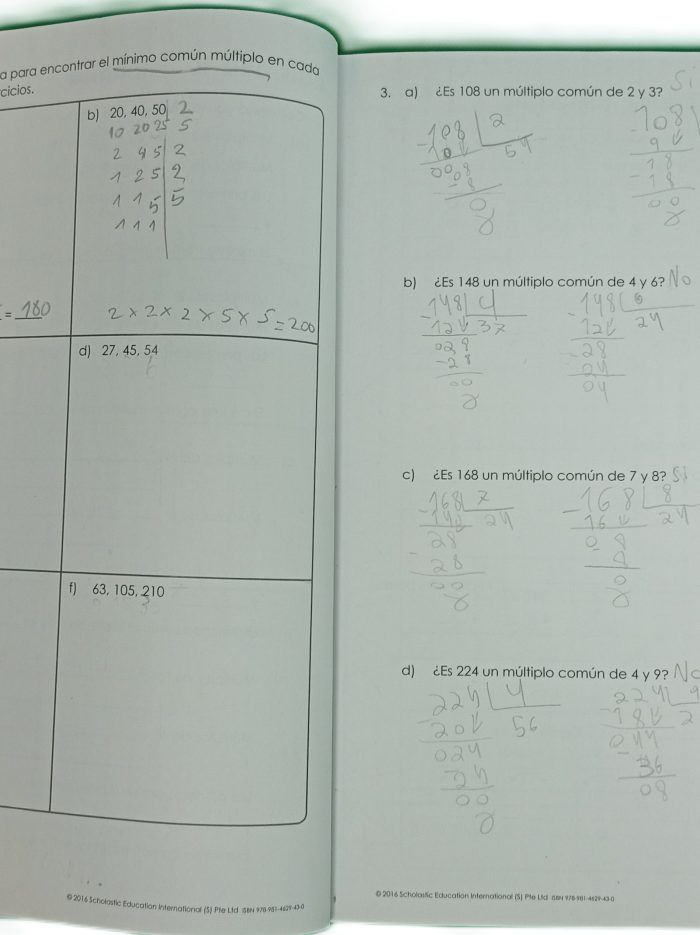 a para encontrar el mínimo común múltiplo en cada
cicios.
b) 20, 40, 50 2
10 20 25 5
2 4 5 2
1 2 5 2
1 1 5 5
1 1 1
= 180
2 × 2 × 2 × 5 × 5 = 200
d) 27, 45, 54
f) 63, 105, 210
© 2016 Scholastic Education International (S) Pte Ltd ISBN 978-981-4629-43-0
3. a) ¿Es 108 un múltiplo común de 2 y 3? Si
108 2
- 10 54
0008
- 8
0
108
9
18
- 18
00
b) ¿Es 148 un múltiplo común de 4 y 6? No
- 148 4
12 37
028
- 28
00
- 148 6
12 24
- 28
24
04
c) ¿Es 168 un múltiplo común de 7 y 8? Si
- 168 7
14 24
28
- 28
00
- 168 8
16 21
0 8
- 8
0
d) ¿Es 224 un múltiplo común de 4 y 9? No
224 4
- 20 56
024
24
00
224 9
- 18 2
044
- 36
08
© 2016 Scholastic Education International (S) Pte Ltd ISBN 978-981-4629-43-0